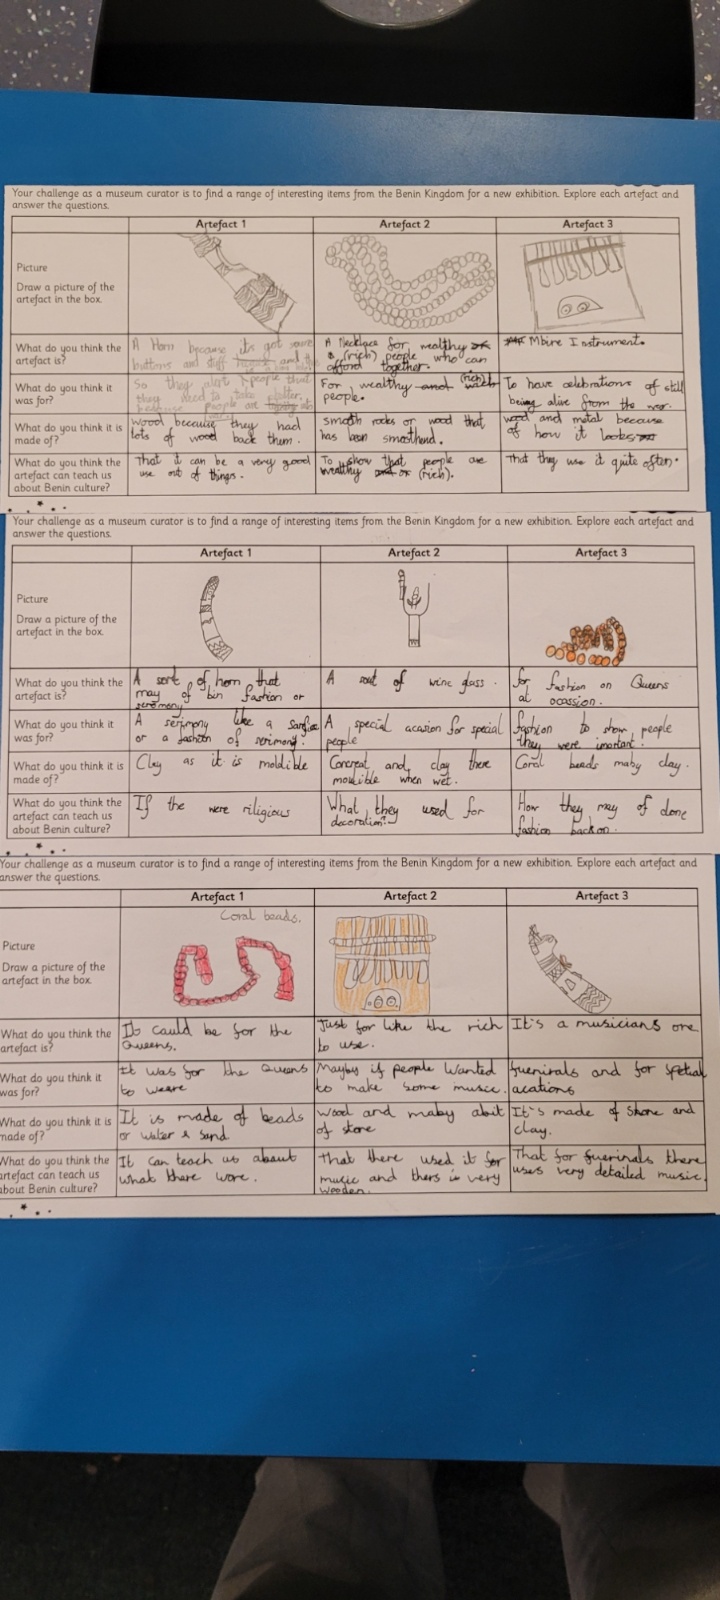 Your challenge as a museum curator is to find a range of interesting items from the Benin Kingdom for a new exhibition. Explore each artefact and
answer the questions.
Artefact 1
Artefact 2
Artefact 3
Picture
Draw a picture of the
artefact in the box.
What do you think the
artefact is?
A Horn because its got some
buttons and stuff
A Necklace for wealthy
(rich) people who can
afford together.
Mbire Instrument.
What do you think it
was for?
So they alert people that
they need to take
because people are
For wealthy (rich)
people.
To have celebrations of still
being alive from the war.
What do you think it is
made of?
wood because they had
lots of wood back them.
smooth rocks or wood that
has been smoothend.
wood and metal because
of how it looks
What do you think the
artefact can teach us
about Benin culture?
That it can be a very good
use out of things.
To show that people are
wealthy (rich).
That they use it quite often.
Your challenge as a museum curator is to find a range of interesting items from the Benin Kingdom for a new exhibition. Explore each artefact and
answer the questions.
Artefact 1
Artefact 2
Artefact 3
Picture
Draw a picture of the
artefact in the box.
What do you think the
artefact is?
A sort of horn that
may of bin fashion or
seremony
A sort of wine glass.
for fashion on Queens
at ocassion.
What do you think it
was for?
A serimony like a
or a fashion of serimony.
A special acasion for special
people
fashion to show people
they were imortant.
What do you think it is
made of?
Clay as it is moldible
Concreat and clay there
mouldible when wet.
Coral beads maby clay.
What do you think the
artefact can teach us
about Benin culture?
If the were riligious
What they used for
decoration?
How they may of done
fashion back on.
Your challenge as a museum curator is to find a range of interesting items from the Benin Kingdom for a new exhibition. Explore each artefact and
answer the questions.
Artefact 1
Artefact 2
Artefact 3
Picture
Draw a picture of the
artefact in the box.
Coral beads.
What do you think the
artefact is?
It could be for the
Queens.
Just for like the rich
to use.
It's a musicians one
What do you think it
was for?
It was for the Queens
to weare
Mayby if people wanted
to make some music.
fuenirals and for
acations
What do you think it is
made of?
It is made of beads
or water & sand
wood and maby abit
of stone
It's made of stone and
clay.
What do you think the
artefact can teach us
about Benin culture?
It can teach us about
what there wore.
That there used it for
music and thers is very
wooden.
That for fuerinals there
uses very detailed music.